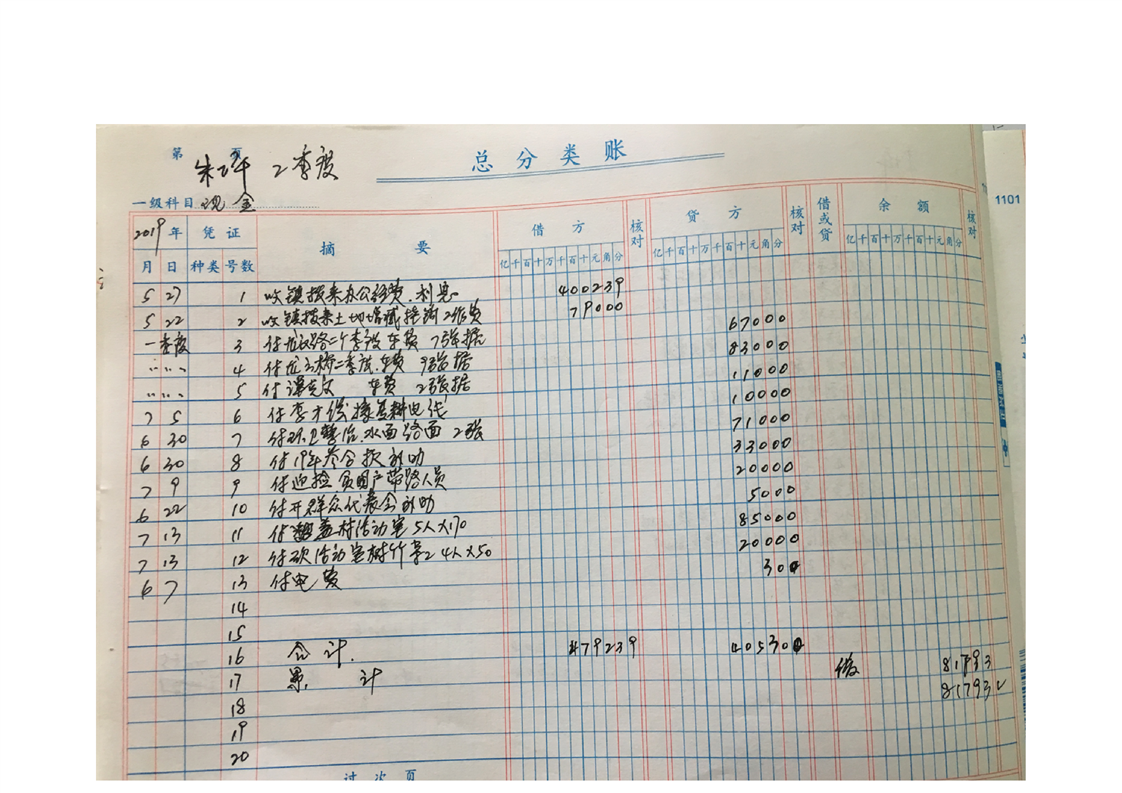 第 页
2季度
总分类账
1101
一级科目 现金
2019年 凭证 摘要 借方 核对 贷方 核对 借或贷 余额 核对
月 日 种类 号数 亿千百十万千百十元角分 亿千百十万千百十元角分 亿千百十万千百十元角分
5 27 1 收镇拨来办公经费.利息 400239
5 22 2 收镇拨来土地增减挂钩 79000
一季度 3 付 二个季度车费 7张据 67000
〃〃〃 4 付 桥二季度.车费 9张据 83000
〃〃〃 5 付 车费 2张据 11000
7 5 6 付李才 电线 10000
6 30 7 付环卫整治.水面路面 2张 71000
6 30 8 付19年 补助 33000
7 9 9 付迎检贫困户带路人员 20000
6 22 10 付开群众代表会补助 5000
7 13 11 付 村活动室 5人×170 85000
7 13 12 付砍活动室树竹 4人×50 20000
6 7 13 付电费 300
14
15
16 合计. 479239 405300
17 累.计 81793
18 81793
19
20
过次页